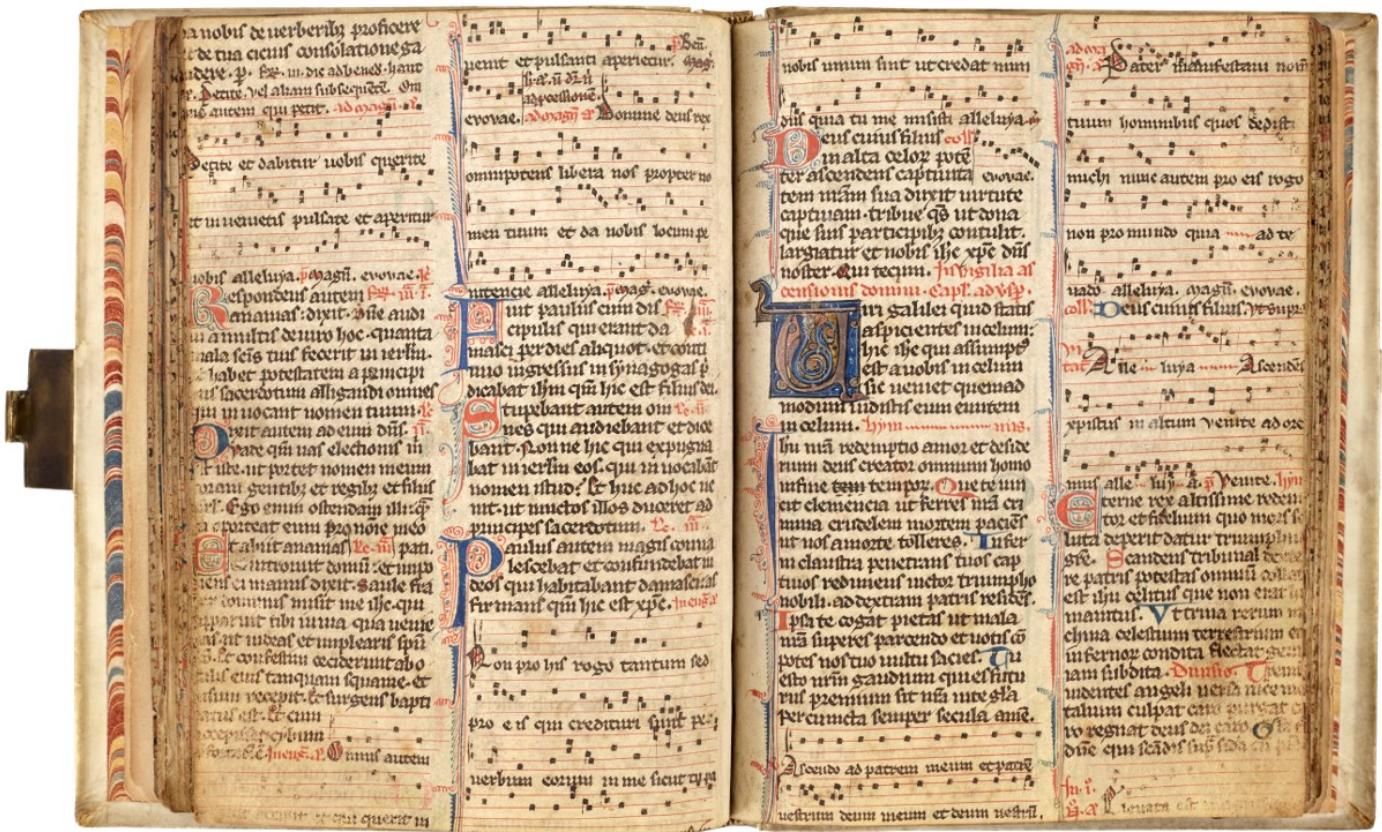 a nobis de uerberibꝫ proficere
et de tua cicius consolatione ga
dere. p. in die ad bened. hant
Petite. vel aliam subsequētē. Om
autem qui petit. ad magñ. a
Petite et dabitur uobis querite
et inuenietis pulsate et aperietur
uobis alleluya. p̄ magñ. evovae.
Respondens autem
ananias: dixit. Dñe audi
a multis de uiro hoc. quanta
mala scīs tuis fecerit in ierlm.
habet potestatem a principi
sacerdotum alligandi omnes
qui inuocant nomen tuum.
Dixit autem ad eum dñs.
Vade qm̄ uas electionis m̄
ē iste. ut portet nomen meum
coram gentibꝫ et regibꝫ et filiis
isrl. Ego enim ostendam illi. qͣ
oporteat eum pro nōīe meo
Et abiit ananias pati.
introiuit domū. et impo
nens ei manus dixit. Saule fra
ter dominus misit me ihc. qui
apparuit tibi in uia qua uenie
bas. ut uideas et implearis spū
Et confestim ceciderunt ab o
culis eius tanquam squame. et
uisum recepit. Et surgens bapti
zatus est. Et cum
accepisset cybum
Omnis autem
qui querit in
uenit et pulsanti aperietur. mag̃.
evovae. ad magñ a Domine deus rex
omnipotens libera nos propter no
men tuum et da nobis locum pe
nitencie alleluya. p̄ mag̃. evovae.
Fuit paulus cum dis
cipulis qui erant da
masci per dies aliquot. et conti
nuo ingressus in synagogas p̄
dicabat ihm qm̄ hic est filius dei.
Stupebant autem om
nes qui audiebant et dice
bant. Non ne hic qui expugna
bat in ierlm eos. qui inuocabāt
nomen istud? Et huc ad hoc ue
nit. ut uinctos illos duceret ad
principes sacerdotum.
Paulus autem magis conua
lescebat et confundebat iu
deos qui habitabant damascū af
firmans qm̄ hic est xpc.
Non pro his rogo tantum sed
pro eis qui credituri sunt per
uerbum eorum in me sicut tu pa
nobis unum sint ut credat mun
dus quia tu me misisti alleluya
Deus cuius filius coll̄
in alta celoꝝ potē
ter ascendens captiuita evovae.
tem nr̄am sua duxit uirtute
captiuam. tribue qs̄ ut dona
que suis participibꝫ contulit.
largiatur et nobis ihc xpc dn̄s
noster. Qui tecum. In uigilia as
censionis domini. Capl̄. ad uesp̄.
Uiri galilei quid statis
aspicientes in celum:
hic ihc qui assumptꝰ
est a uobis in celum
sic ueniet quemad
modum uidistis eum euntem
in celum. hym nus.
Ihu nr̄a redemptio amor et deside
rium deus creator omnium homo
in fine tem tempoꝝ. Que te uin
cit clemencia ut ferres nr̄a cri
mina crudelem mortem paciēs
ut nos a morte tolleres. Infer
ni claustra penetrans tuos cap
tiuos redimens uictor triumpho
nobili. ad dextram patris residēs.
Ipsa te cogat pietas ut mala
nr̄a superes parcendo et uotis cō
potes nos tuo uultu sacies. Tu
esto nrm̄ gaudium qui es futu
rus premium sit nr̄a in te gla
per cuncta semper secula amē.
Ascendo ad patrem meum et patrē
uestrum deum meum et deum uestrū
Pater manifestaui nom
tuum hominibus quos dedisti
michi nunc autem pro eis rogo
non pro mundo quia ad te
uado alleluya. magñ. evovae.
coll̄. Deus cuius filius. Vt supra
Alle luya Ascendens
xpistus in altum venite adore
mus alle luy a. p̄ Venite. hym̄
Eterne rex altissime redem
tor et fidelium quo mors so
luta deperit datur triumphus
gr̄e. Scandens tribunal dexte
re patris potestas omniū colla
est ihu celitus que non erat h
manitus. Vt trina rerum m
china celestium terrestrium et
infernoꝝ condita flectat gen
iam subdita. Diuisio. Tremunt
uidentes angeli uersa uice mor
talium culpat caro purgat ca
ro regnat deus dei caro. O
dn̄e qui scādis